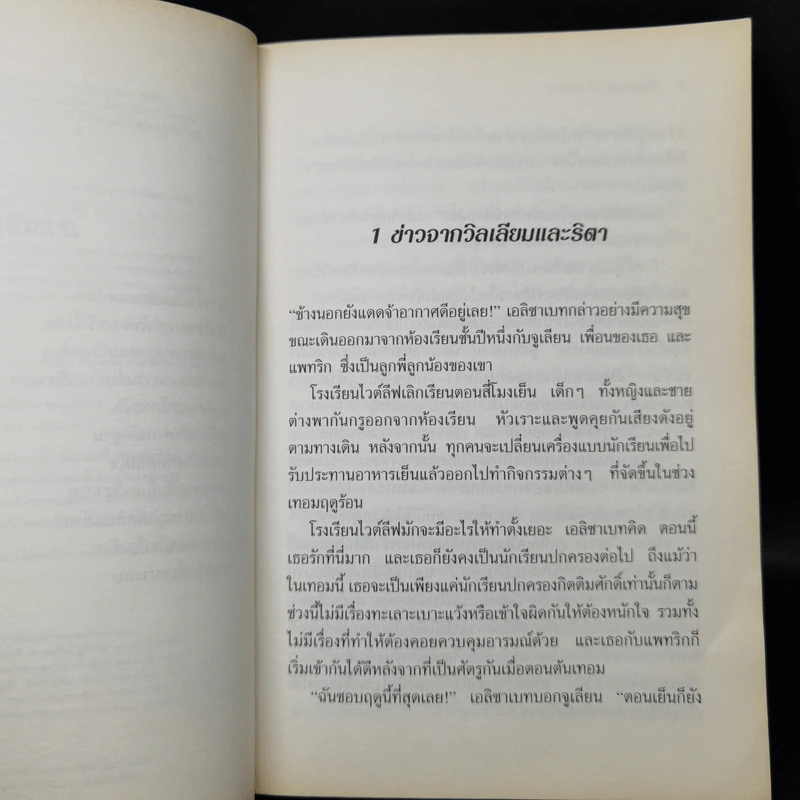 1 ข่าวจากวิลเลียมและริตา
“ข้างนอกยังแดดจ้าอากาศดีอยู่เลย!” เอลิซาเบทกล่าวอย่างมีความสุข
ขณะเดินออกมาจากห้องเรียนชั้นปีหนึ่งกับจูเลียน เพื่อนของเธอ และ
แพทริก ซึ่งเป็นลูกพี่ลูกน้องของเขา
โรงเรียนไวต์ลีฟเลิกเรียนตอนสี่โมงเย็น เด็กๆ ทั้งหญิงและชาย
ต่างพากันกรูออกจากห้องเรียน หัวเราะและพูดคุยกันเสียงดังอยู่
ตามทางเดิน หลังจากนั้น ทุกคนจะเปลี่ยนเครื่องแบบนักเรียนเพื่อไป
รับประทานอาหารเย็นแล้วออกไปทำกิจกรรมต่างๆ ที่จัดขึ้นในช่วง
เทอมฤดูร้อน
โรงเรียนไวต์ลีฟมักจะมีอะไรให้ทำตั้งเยอะ เอลิซาเบทคิด ตอนนี้
เธอรักที่นี่มาก และเธอก็ยังคงเป็นนักเรียนปกครองต่อไป ถึงแม้ว่า
ในเทอมนี้ เธอจะเป็นเพียงแค่นักเรียนปกครองกิตติมศักดิ์เท่านั้นก็ตาม
ช่วงนี้ไม่มีเรื่องทะเลาะเบาะแว้งหรือเข้าใจผิดกันให้ต้องหนักใจ รวมทั้ง
ไม่มีเรื่องที่ทำให้ต้องคอยควบคุมอารมณ์ด้วย และเธอกับแพทริกก็
เริ่มเข้ากันได้ดีหลังจากที่เป็นศัตรูกันเมื่อตอนต้นเทอม
“ฉันชอบฤดูนี้ที่สุดเลย!” เอลิซาเบทบอกจูเลียน “ตอนเย็นก็ยัง